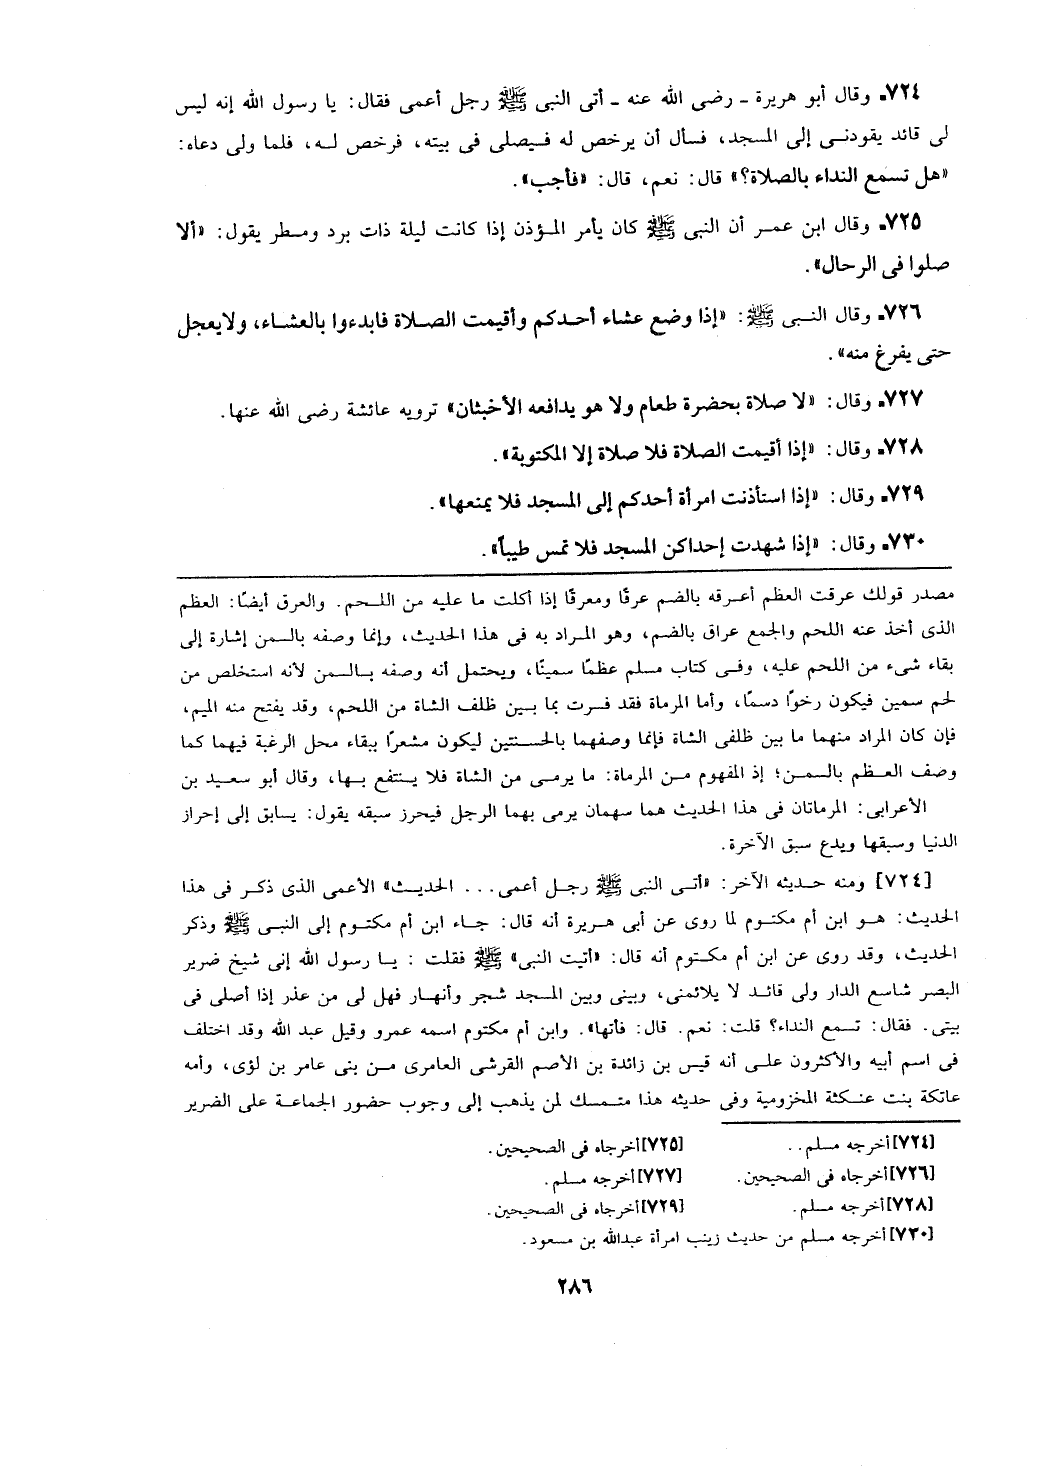 ٧٢٤ـ وقال أبو هريرة ـ رضى الله عنه ـ أتى النبى ﷺ رجل أعمى فقال: يا رسول الله إنه ليس
لى قائد يقودنـى إلى المسجد، فسأل أن يرخص له فيصلى فى بيته، فرخص له، فلما ولى دعاه:
«هل تسمع النداء بالصلاة؟» قال: نعم، قال: «فأجب».
٧٢٥ـ وقال ابن عمر أن النبى ﷺ كان يأمر المؤذن إذا كانت ليلة ذات برد ومطر يقول: «ألا
صلوا فى الرحال».
٧٢٦ـ وقال النبى ﷺ: «إذا وضع عشاء أحدكم وأقيمت الصلاة فابدءوا بالعشاء، ولايعجل
حتى يفرغ منه».
٧٢٧ـ وقال: «لا صلاة بحضرة طعام ولا هو يدافعه الأخبثان» ترويه عائشة رضى الله عنها.
٧٢٨ـ وقال: «إذا أقيمت الصلاة فلا صلاة إلا المكتوبة».
٧٢٩ـ وقال: «إذا استأذنت امرأة أحدكم إلى المسجد فلا يمنعها».
٧٣٠ـ وقال: «إذا شهدت إحداكن المسجد فلا تمس طيباً».
مصدر قولك عرقت العظم أعرقه بالضم عرقًا ومعرقًا إذا أكلت ما عليه من اللحم. والعرق أيضًا: العظم
الذى أخذ عنه اللحم والجمع عراق بالضم، وهو المراد به فى هذا الحديث، وإنما وصفه بالسمن إشارة إلى
بقاء شىء من اللحم عليه، وفى كتاب مسلم عظمًا سمينًا، ويحتمل أنه وصفه بالسمن لأنه استخلص من
لحم سمين فيكون رخوًا دسمًا، وأما المرماة فقد فسرت بما بين ظلف الشاة من اللحم، وقد يفتح منه الميم،
فإن كان المراد منهما ما بين ظلفى الشاة فإنما وصفهما بالحسنتين ليكون مشعرًا ببقاء محل الرغبة فيهما كما
وصف العظم بالسمن؛ إذ المفهوم من المرماة: ما يرمى من الشاة فلا ينتفع بها، وقال أبو سعيد بن
الأعرابى: المرماتان فى هذا الحديث هما سهمان يرمى بهما الرجل فيحرز سبقه يقول: يسابق إلى إحراز
الدنيا وسبقها ويدع سبق الآخرة.
[٧٢٤] ومنه حديثه الآخر: «أتى النبى ﷺ رجل أعمى... الحديث» الأعمى الذى ذكر فى هذا
الحديث: هو ابن أم مكتوم لما روى عن أبى هريرة أنه قال: جاء ابن أم مكتوم إلى النبى ﷺ وذكر
الحديث، وقد روى عن ابن أم مكتوم أنه قال: «أتيت النبى» ﷺ فقلت : يا رسول الله إنى شيخ ضرير
البصر شاسع الدار ولى قائد لا يلائمنى، وبينى وبين المسجد شجر وأنهار فهل لى من عذر إذا أصلى فى
بيتى. فقال: تسمع النداء؟ قلت: نعم. قال: فأتها». وابن أم مكتوم اسمه عمرو وقيل عبد الله وقد اختلف
فى اسم أبيه والأكثرون على أنه قيس بن زائدة بن الأصم القرشى العامرى من بنى عامر بن لؤى، وأمه
عاتكة بنت عنكثة المخزومية وفى حديثه هذا متمسك لمن يذهب إلى وجوب حضور الجماعة على الضرير
[٧٢٤]أخرجه مسلم.. [٧٢٥]أخرجاه فى الصحيحين.
[٧٢٦]أخرجاه فى الصحيحين. [٧٢٧]أخرجه مسلم.
[٧٢٨]أخرجه مسلم. [٧٢٩]أخرجاه فى الصحيحين.
[٧٣٠]أخرجه مسلم من حديث زينب امرأة عبدالله بن مسعود.
٢٨٦